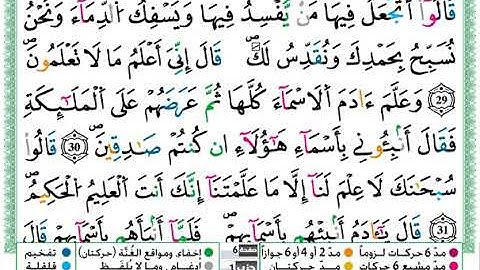 قَالُوٓا۟ أَتَجْعَلُ فِيهَا مَنْ يُّفْسِدُ فِيهَا وَيَسْفِكُ الدِّمَآءَ وَنَحْنُ
نُسَبِّحُ بِحَمْدِكَ وَنُقَدِّسُ لَكَۖ قَالَ إِنِّىَ أَعْلَمُ مَا لَا تَعْلَمُونَۖ
29 وَعَلَّمَ ءَادَمَ الْأَسْمَآءَ كُلَّهَا ثُمَّ عَرَضَهُمْ عَلَى الْمَلَٰٓئِكَةِ
فَقَالَ أَنۢبِـُٔونِى بِأَسْمَآءِ هَٰٓؤُلَآءِ ان كُنتُمْ صَٰدِقِينَۖ 30 قَالُوا۟
سُبْحَٰنَكَ لَا عِلْمَ لَنَآ إِلَّا مَا عَلَّمْتَنَآ إِنَّكَ أَنتَ الْعَلِيمُ الْحَكِيمُۖ
31 قَالَ يَٰٓـَٔادَمُ أَنۢبِئْهُم بِأَسْمَآئِهِمْۖ فَلَمَّآ أَنۢبَأَهُم بِأَسْمَآئِهِمْ قَالَ
مدّ 6 حركات لزوماً مدّ 2 أو 4 أو 6 جوازاً إخفاء ومواقع الغُنَّة (حركتان) تفخيم
مدّ مشبع 6 حركات مدّ حركتان إدغام، وما لا يُلفَظ قلقلة